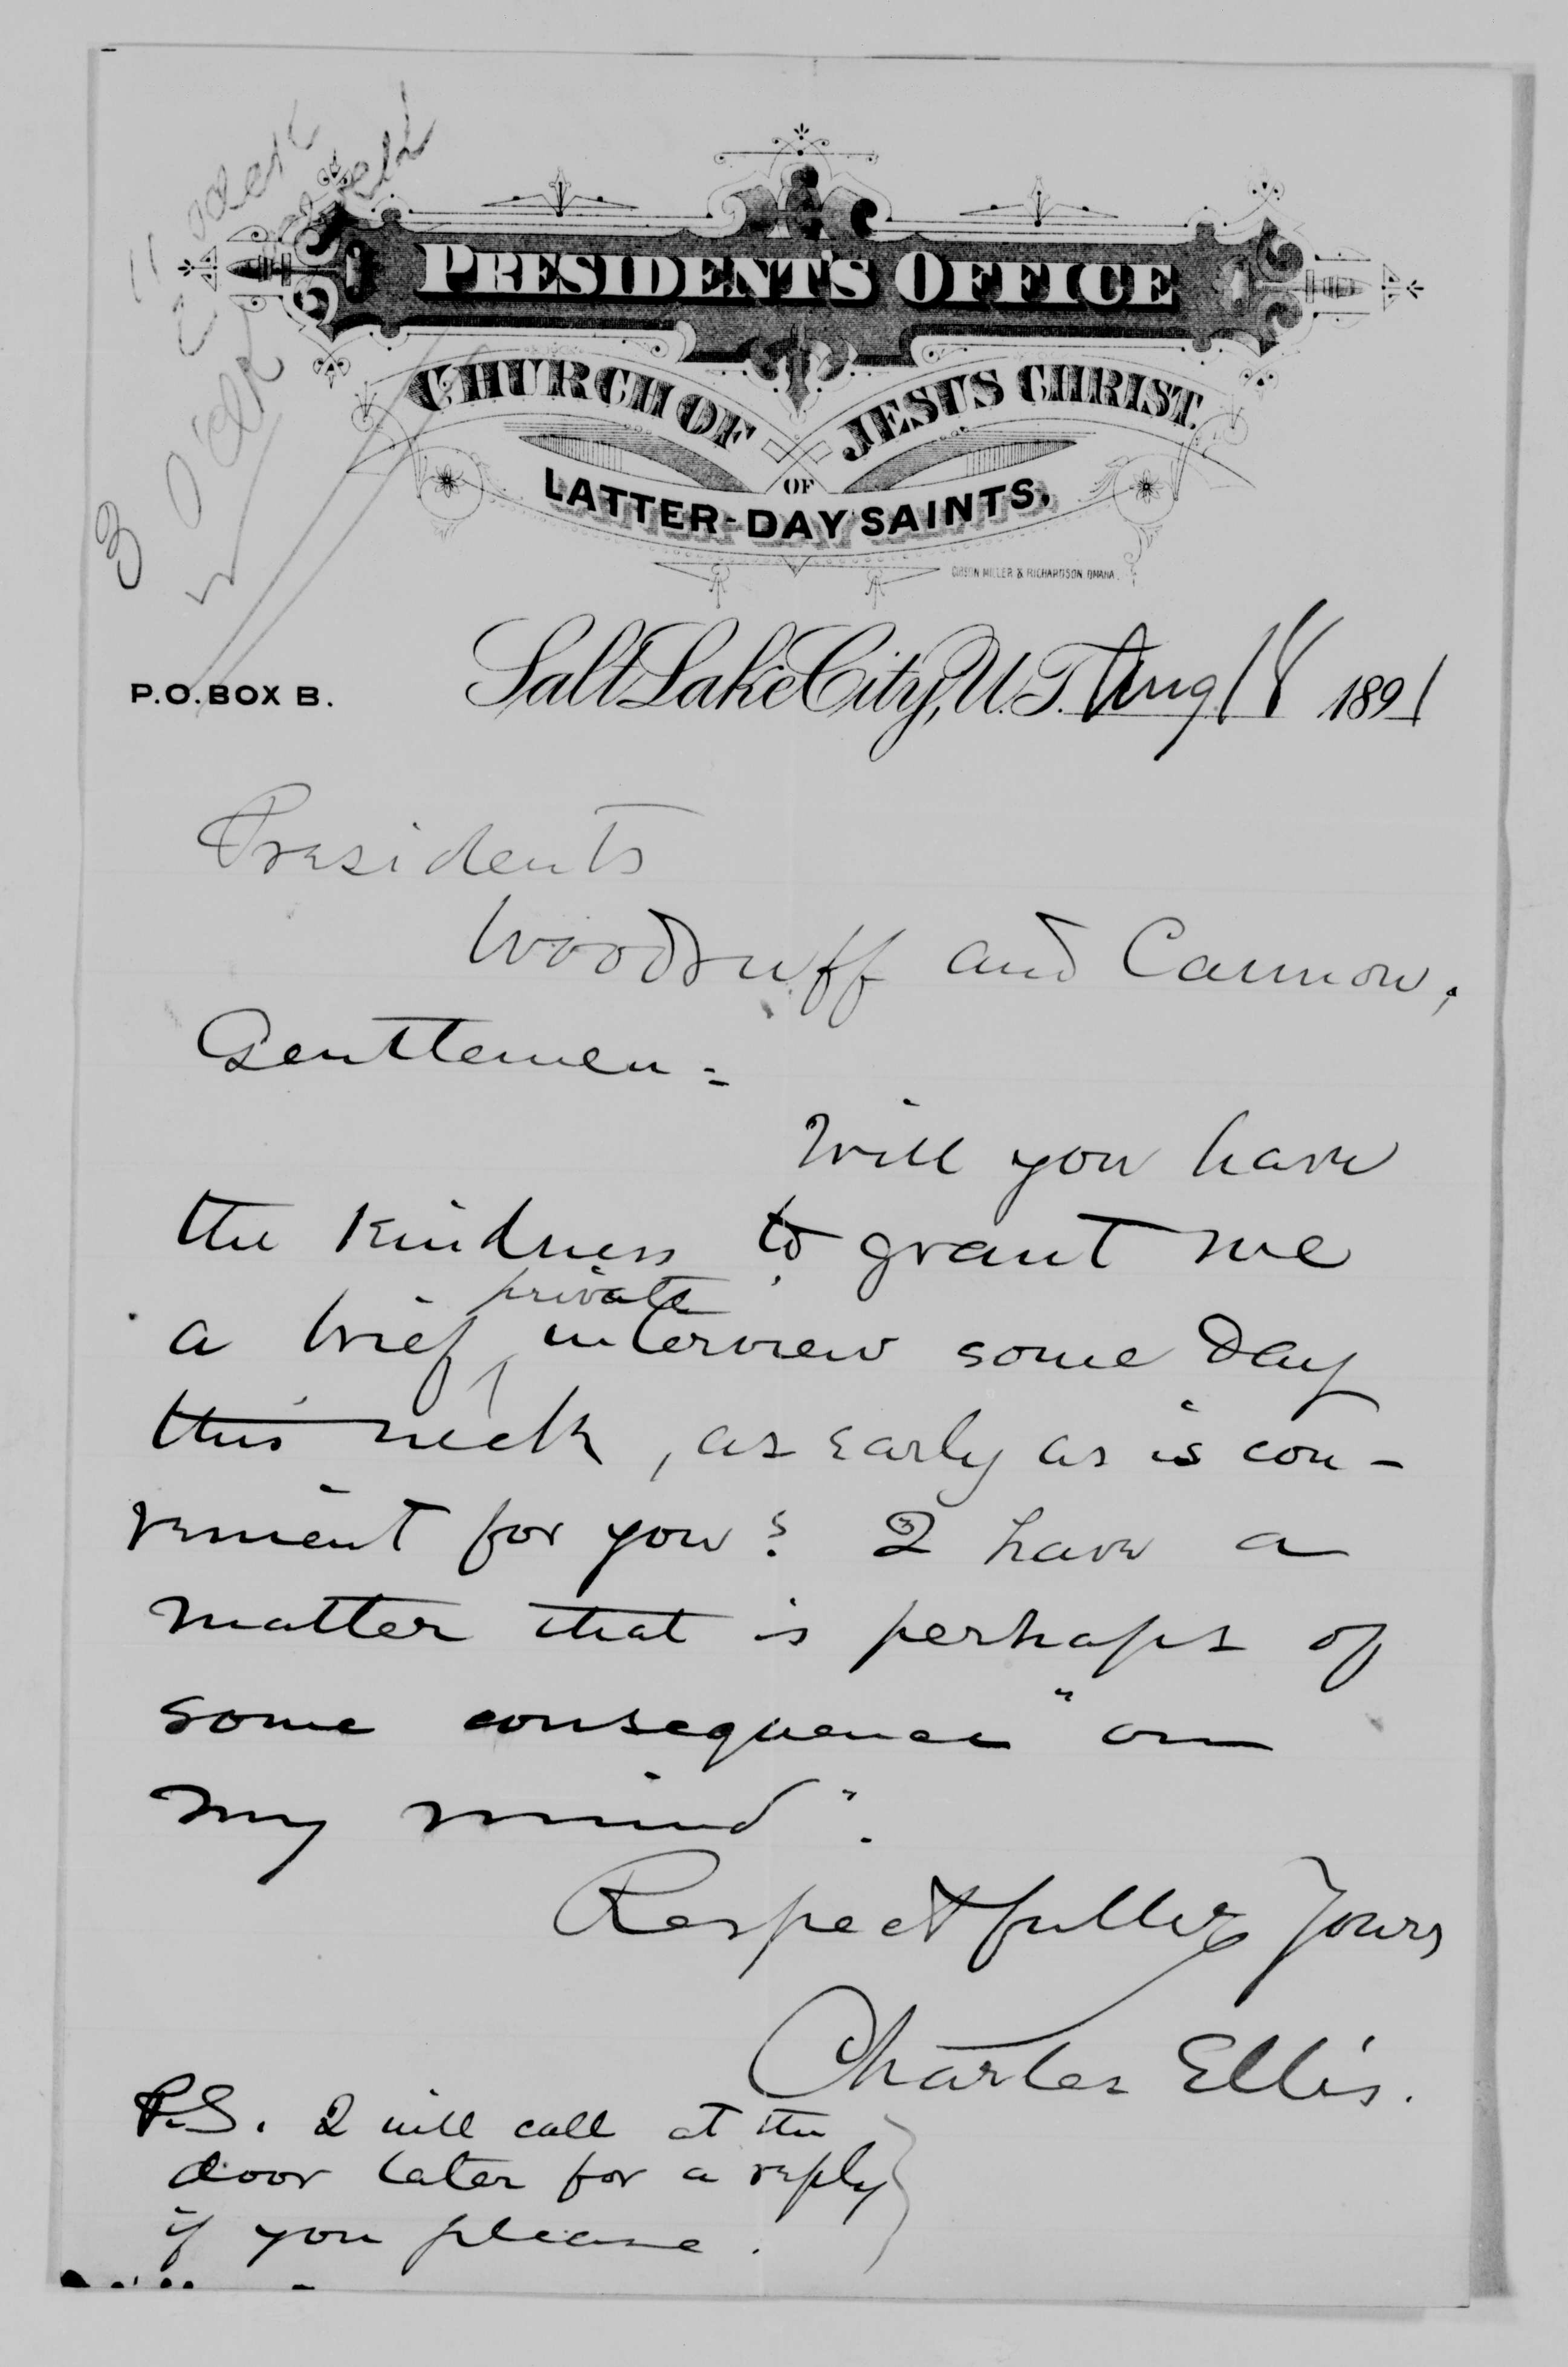 3 O'clk
PRESIDENT'S OFFICE
CHURCH OF JESUS CHRIST
OF
LATTER-DAY SAINTS.
P.O. BOX B.
Salt Lake City, U.T. Aug 18 1891
Presidents
Woodruff and Cannon,
Gentlemen:
Will you have
the kindness to grant me
private
a brief interview some day
this week, as early as is con-
venient for you? I have a
matter that is perhaps of
some consequence "on
my mind".
Respectfully Yours
Charles Ellis.
P.S. I will call at the
door later for a reply
if you please.